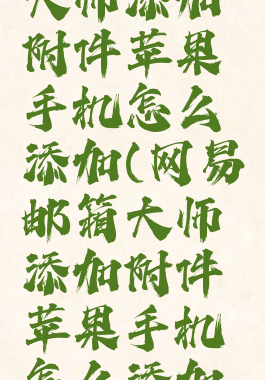 大师添加
附件苹果
手机怎么
添加(网易
邮箱大师
添加附件
苹果手机
怎么添加